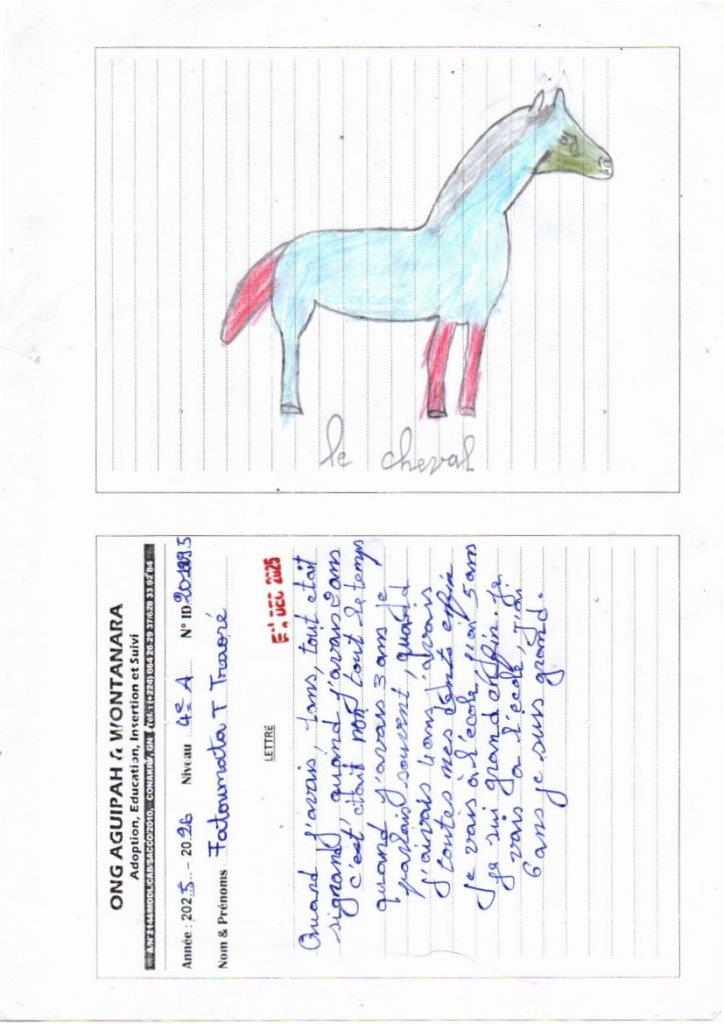 le cheval
ONG AGUIPAH & WONTANARA
Adoption, Education, Insertion et Suivi
Année : 2025 - 2026 Niveau 4e A N° ID
Nom & Prénoms Fatoumata T Traoré
DEC 2025
LETTRE
Quand j'avais, 1ans, tout etait
signrand, quand j'avais 2ans
c'est etait non tout le temps
quand j'avais 3 ans je
parlais souvent, quand
j'aivais 4ans, j'avais
toutes mes dents effin
je vais à l'école j'ai 5 ans
je sui grand effin. je
vais a l'école, j'ai
6 ans je suis grand.